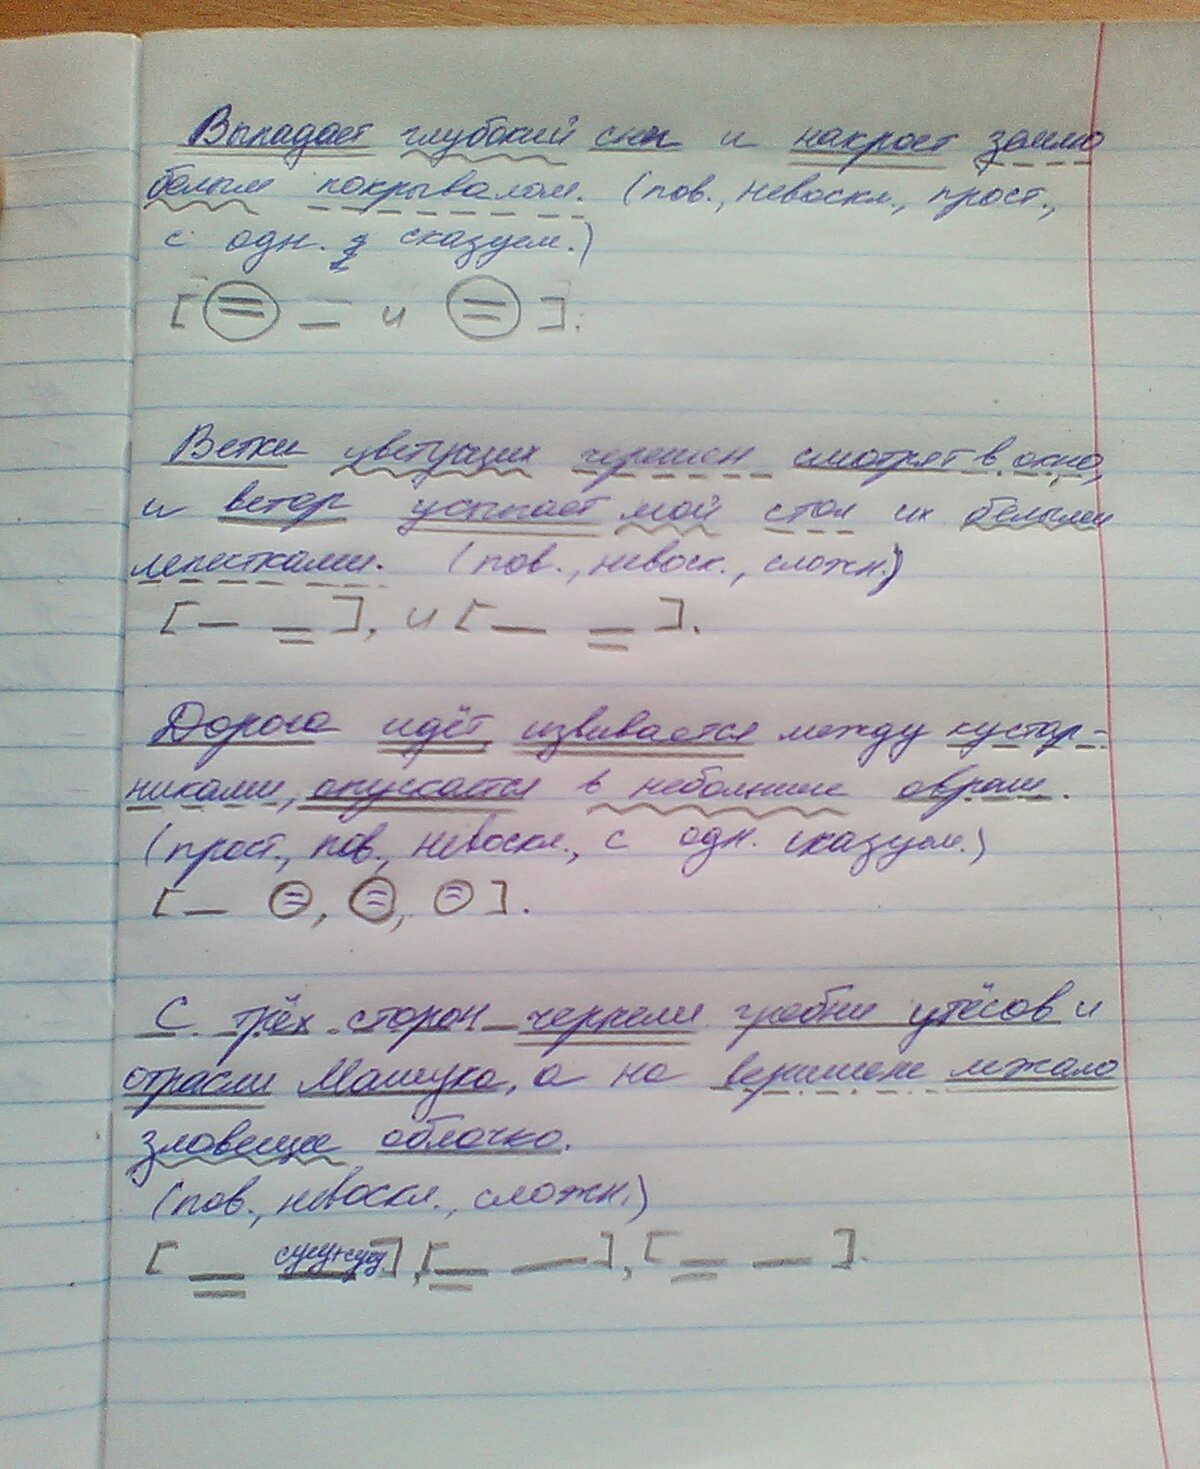 Выпадает глубокий снег и накроет землю
белым покрывалом. (пов., невоскл., прост.,
с одн. сказуем.)
[ и ].
Ветки цветущих черешен смотрят в окно,
и ветер усыпает мой стол их белыми
лепестками. (пов., невоск., сложн.)
[ ], и [ ].
Дорога идёт, извивается между кустар-
никами, опускается в небольшие овраги.
(прост., пов., невоскл., с одн. сказуем.)
[ , , ].
С трёх сторон чернели гребни утёсов и
отрасли Машука, а на вершине лежало
зловещее облачко.
(пов., невоскл., сложн.)
[ ], [ ], [ ].